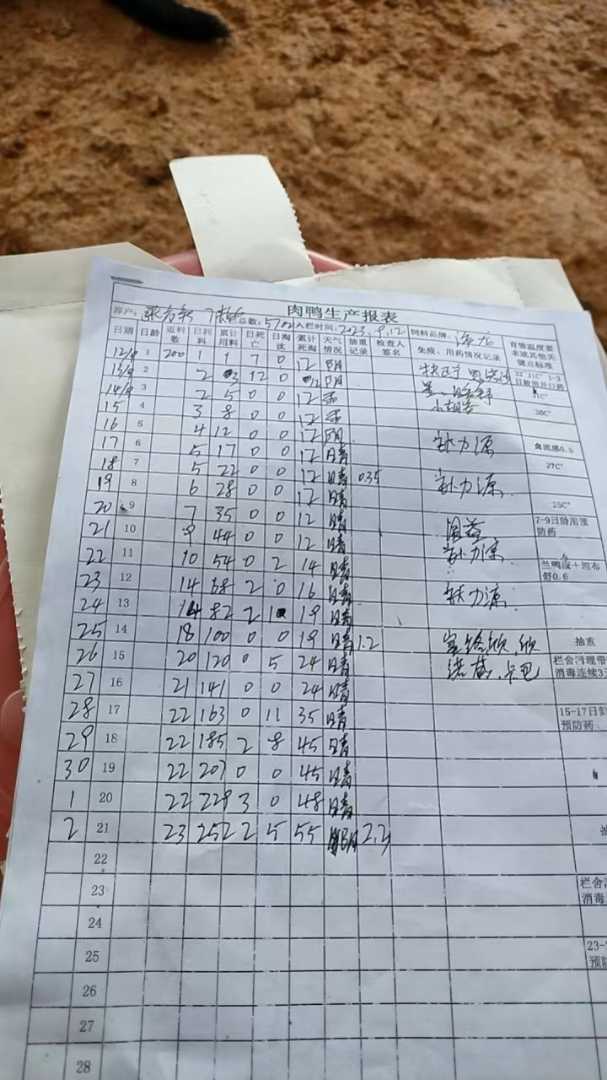 肉鸭生产报表
客户: 总数: 5702 入栏时间: 2023.9.12 饲料品牌:
日期 日龄 返料数 日耗料 累计用料 日死亡 日淘汰 累计死淘 天气情况 抽重记录 检查人签名 免疫、用药情况记录 育雏温度要求或其他关键点标准
12/9 1 200 1 1 7 0 12 阴
13/9 2 2 3 12 0 12 阴
14/9 3 2 5 0 0 12
15 4 3 8 0 0 12 30C°
16 5 4 12 0 0 12 阴 补力源
17 6 5 17 0 0 12 晴 27C°
18 7 5 22 0 0 12 晴 035 补力源
19 8 6 28 0 0 12 晴 25C°
20 9 7 35 0 0 12 晴 7-9日龄用预防药
21 10 9 44 0 0 12 晴 补力源
22 11 10 54 0 2 14 晴
23 12 14 68 2 0 16 晴 补力源
24 13 14 82 2 1 19 晴
25 14 18 100 0 0 19 晴 1.2 抽重
26 15 20 120 0 5 24 晴 栏舍污埋带 消毒连续3
27 16 21 141 0 0 24 晴
28 17 22 163 0 11 35 晴 15-17日 预防药
29 18 22 185 2 8 45 晴
30 19 22 207 0 0 45 晴
1 20 22 229 3 0 48 晴
2 21 23 252 2 5 55 阴 2.3
22
23 栏舍 消毒
24
25 23- 预防
26
27
28